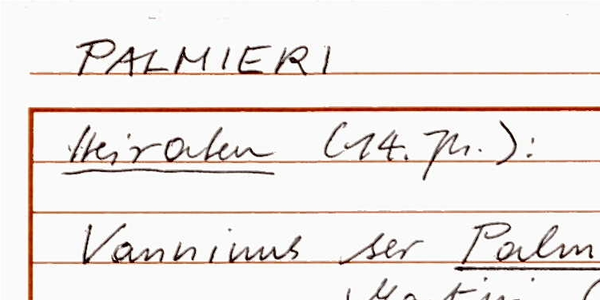 PALMIERI
Heiraten (14. Jh.):
Vanninus ser Palm
Martini (